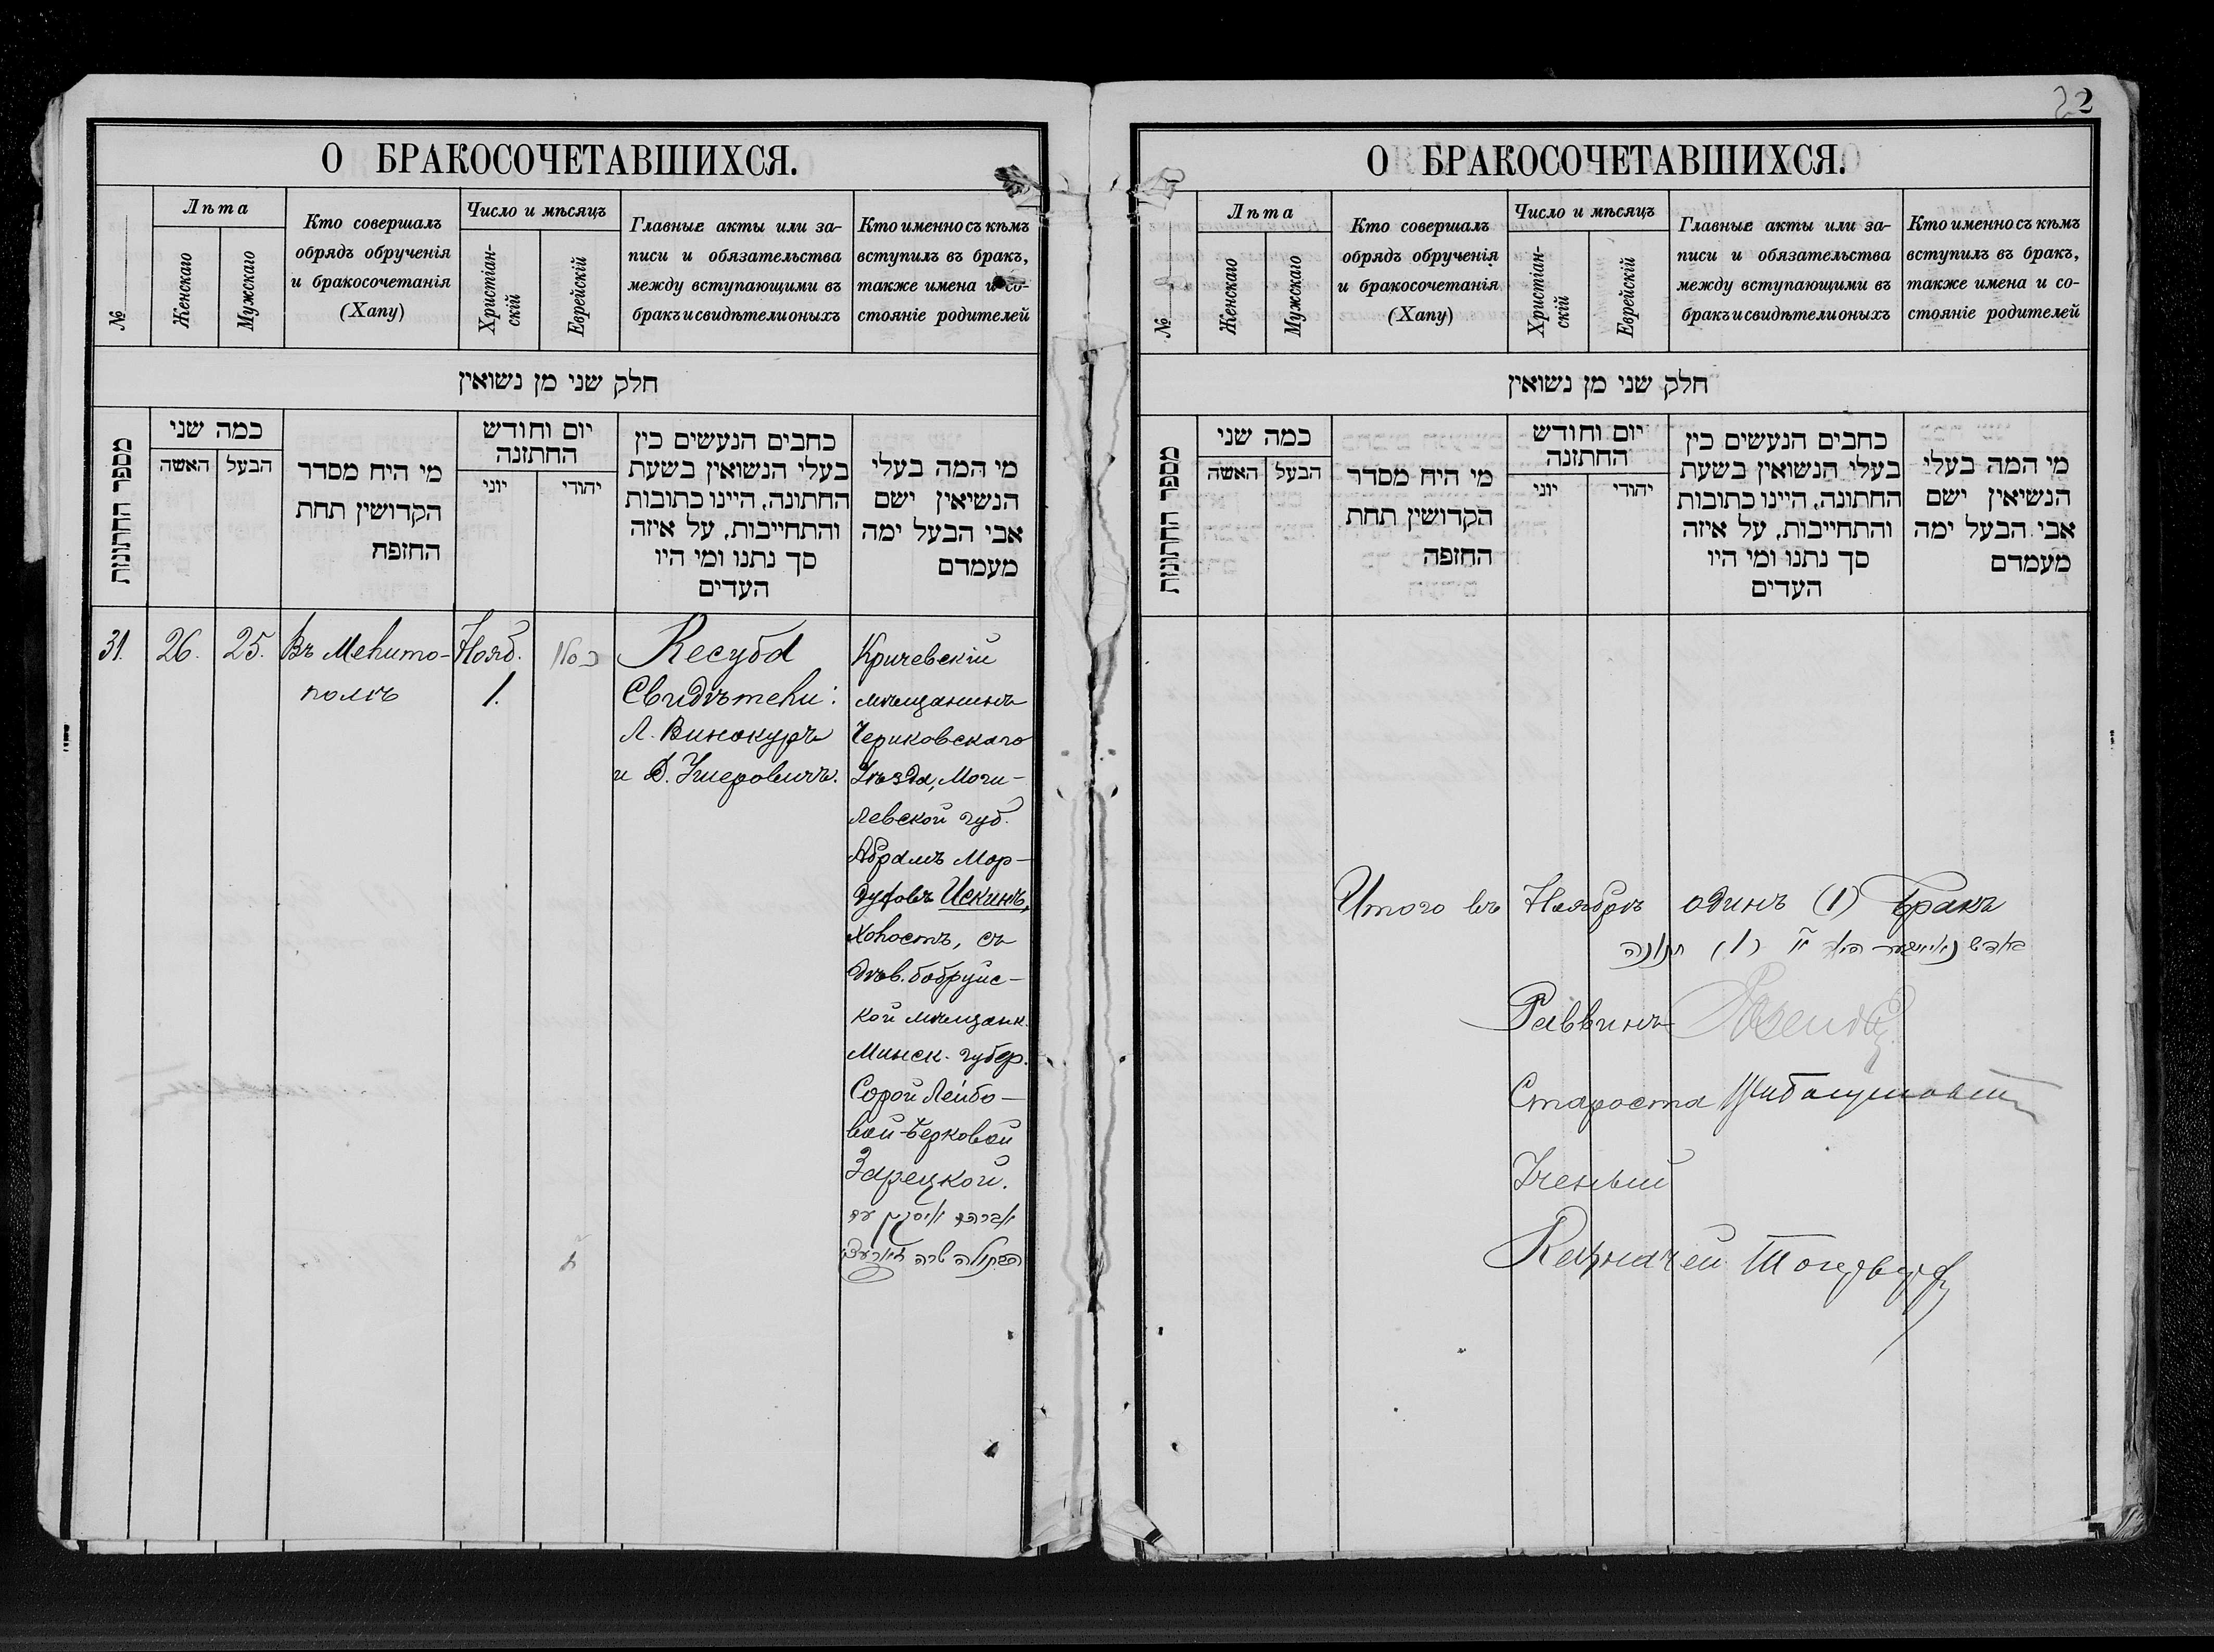 О БРАКОСОЧЕТАВШИХСЯ.
№
Лѣта
Женскаго
Мужскаго
Кто совершалъ
обрядъ обрученія
и бракосочетанія
(Хапу)
Число и мѣсяцъ
Христіан-
скій
Еврейскій
Главные акты или за-
писи и обязательства
между вступающими въ
бракъ и свидѣтели оныхъ
Кто именно съ кѣмъ
вступилъ въ бракъ,
также имена и со-
стояніе родителей
חלק שני מן נשואין
מספר החתונות
כמה שני
האשה
הבעל
מי היח מסדר
הקדושין תחת
החופה
יום וחודש
החתונה
יוני
יהודי
כחבים הנעשים כין
בעלי הנשואין בשעת
החתונה, היינו כתובות
והתחייבות, על איזה
סך נתנו ומי היו
העדים
מי המה בעלי
הנשיאין ישם
אבי הבעל ימה
מעמדם
31.
26.
25.
Въ Мелито-
полѣ
Нояб.
1.
Кесуба
Свидѣтели:
Л. Винокуръ
и Д. Ушеровичъ.
Кричевскій
мѣщанинъ
Чериковскаго
Уѣзда, Моги-
левской губ.
Абрамъ Мор-
духовъ Искинъ,
холостъ, съ
дѣв. бобруйс-
кой мѣщанк.
Минск. губер.
Сорой Лейбо-
вой-Берковой
Зарецкой.
О БРАКОСОЧЕТАВШИХСЯ.
2
№
Лѣта
Женскаго
Мужскаго
Кто совершалъ
обрядъ обрученія
и бракосочетанія
(Хапу)
Число и мѣсяцъ
Христіан-
скій
Еврейскій
Главные акты или за-
писи и обязательства
между вступающими въ
бракъ и свидѣтели оныхъ
Кто именно съ кѣмъ
вступилъ въ бракъ,
также имена и со-
стояніе родителей
חלק שני מן נשואין
מספר החתונות
כמה שני
האשה
הבעל
מי היח מסדר
הקדושין תחת
החופה
יום וחודש
החתונה
יוני
יהודי
כחבים הנעשים כין
בעלי הנשואין בשעת
החתונה, היינו כתובות
והתחייבות, על איזה
סך נתנו ומי היו
העדים
מי המה בעלי
הנשיאין ישם
אבי הבעל ימה
מעמדם
Итого въ Ноябрѣ одинъ (1) бракъ
(1) חתונה
Раввинъ
Староста
Ученый
Казначей